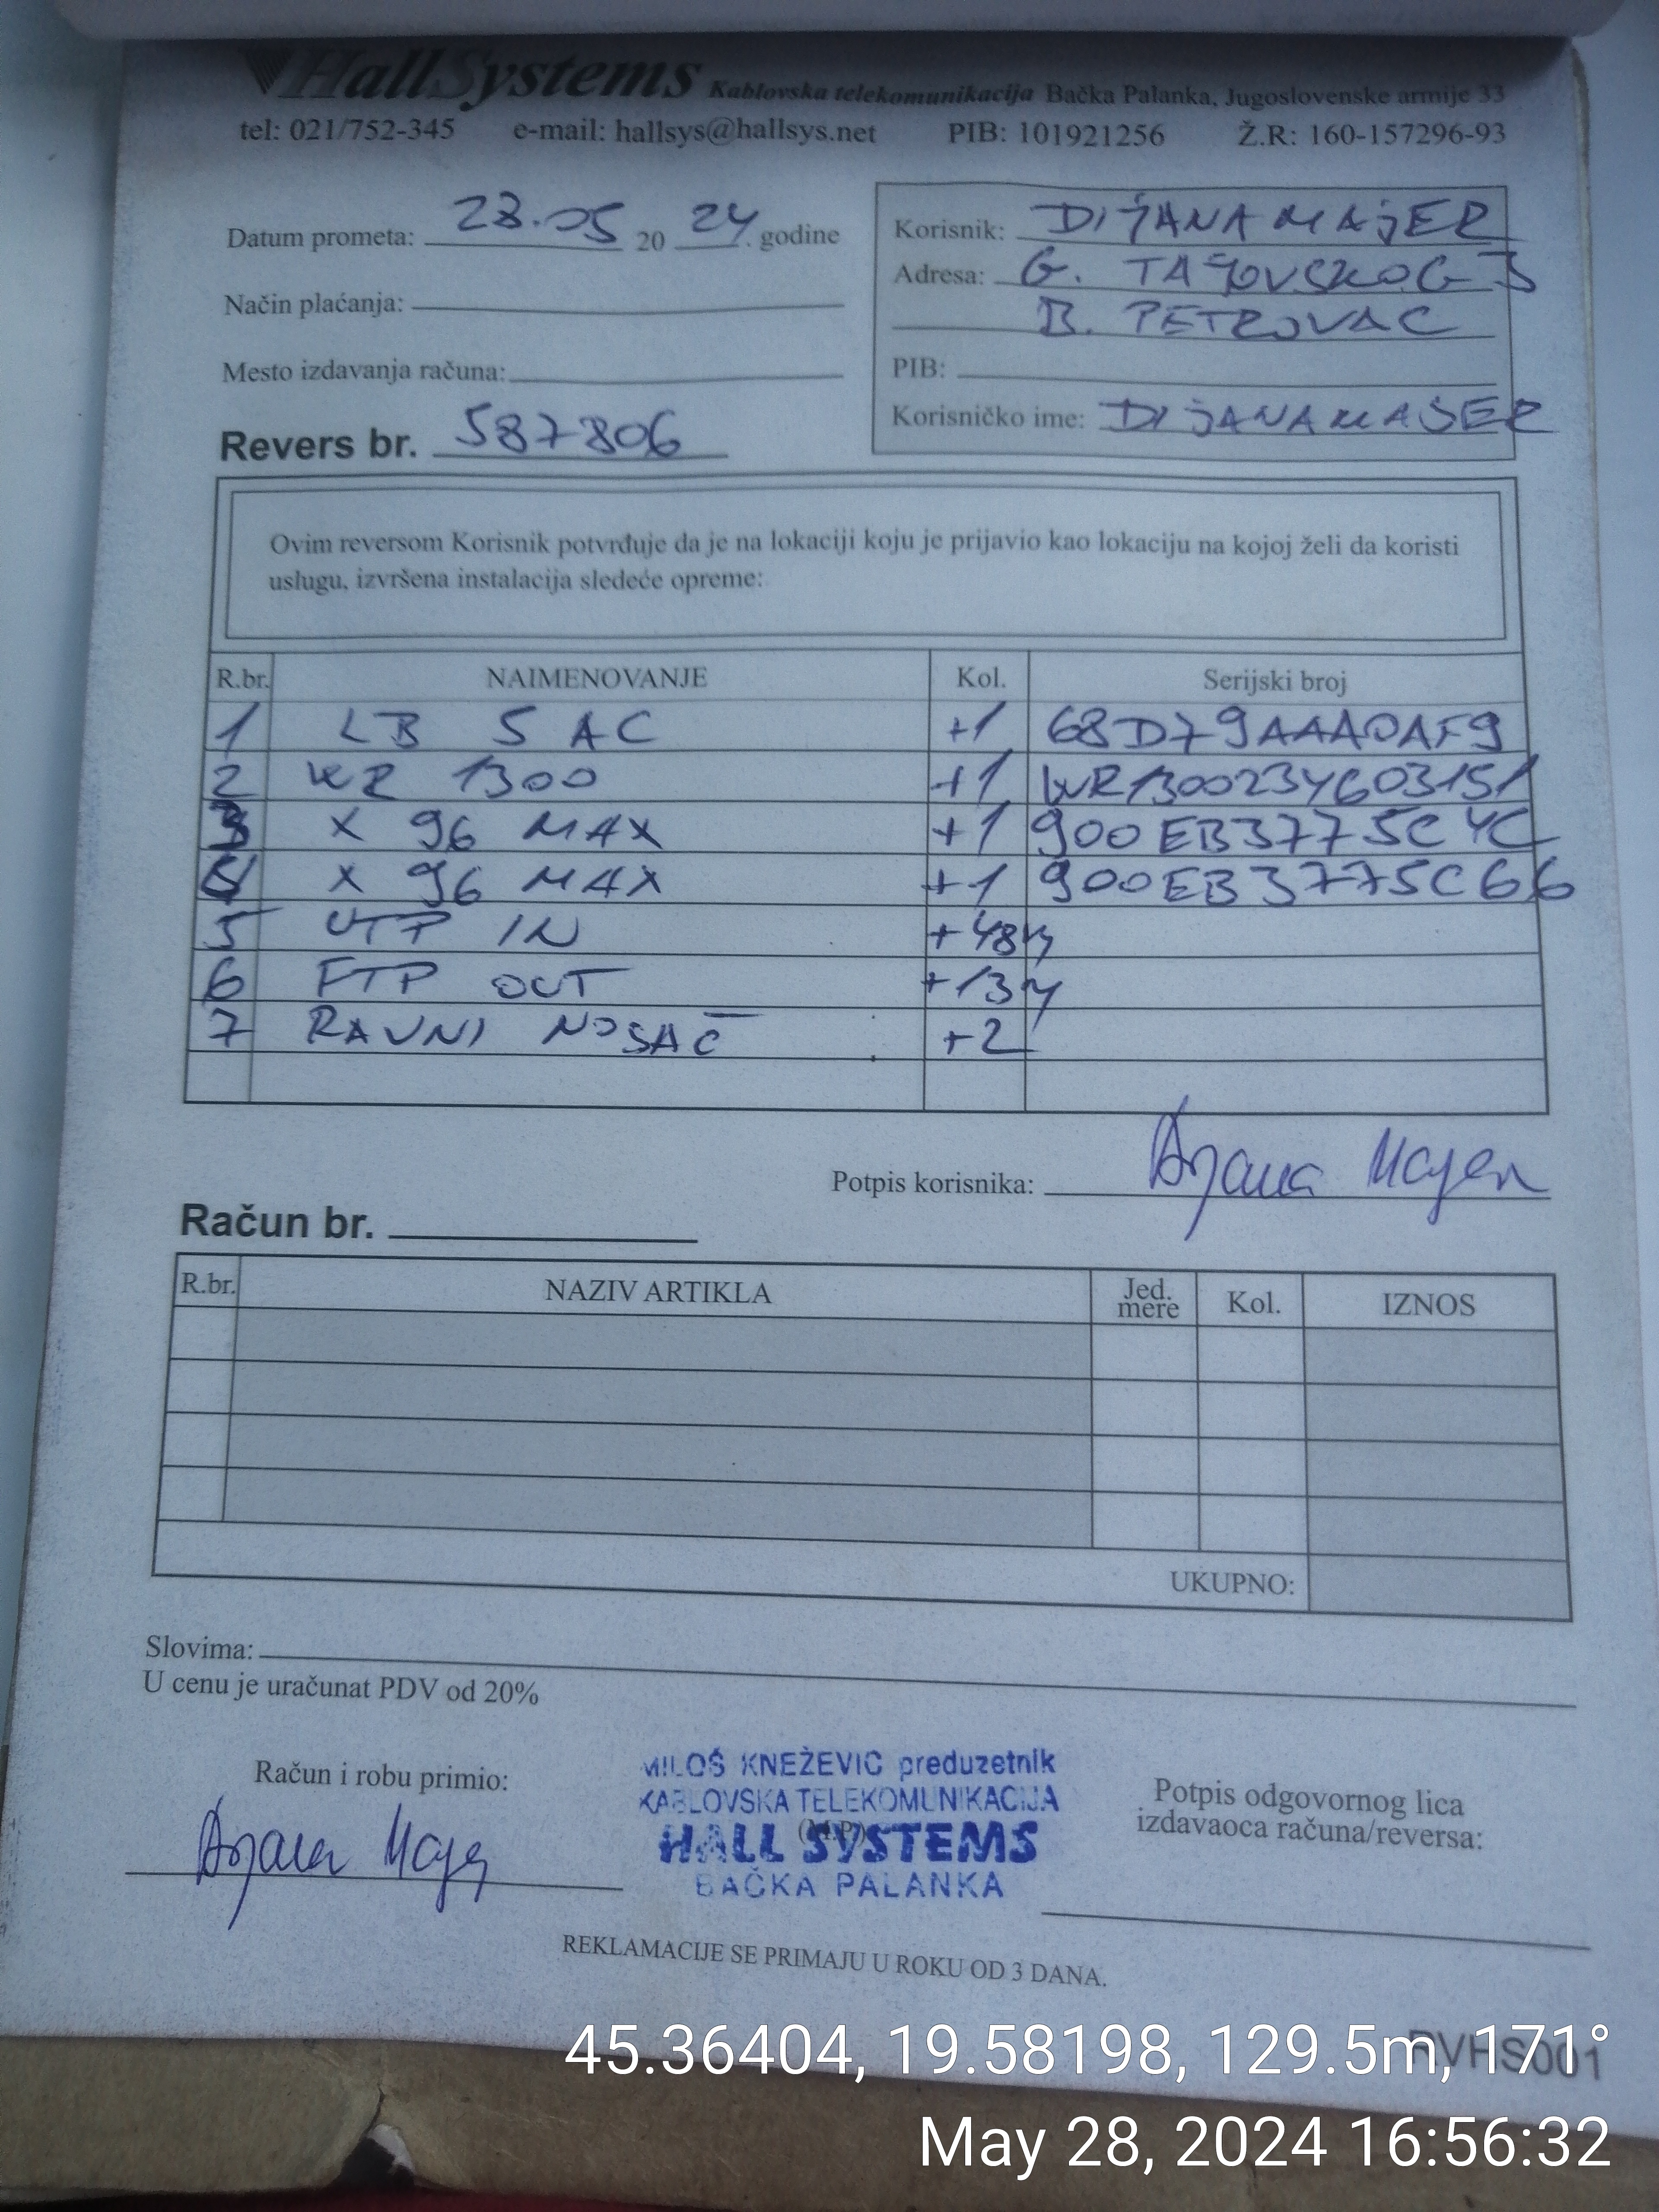 HallSystems Kablovska telekomunikacija Bačka Palanka, Jugoslovenske armije 33
tel: 021/752-345 e-mail: hallsys@hallsys.net PIB: 101921256 Ž.R: 160-157296-93
Datum prometa: 28.05 2024. godine
Korisnik: DIJANA MAJER
Adresa: G. TAJOVSKOG 3
B. PETROVAC
Način plaćanja:
Mesto izdavanja računa:
PIB:
Korisničko ime: DIJANAMAJER
Revers br. 587806
Ovim reversom Korisnik potvrđuje da je na lokaciji koju je prijavio kao lokaciju na kojoj želi da koristi
uslugu, izvršena instalacija sledeće opreme:
R.br. NAIMENOVANJE Kol. Serijski broj
1 LB 5 AC +1 68D79AAA0AF9
2 WR 1300 +1 WR1300234603151
3 X 96 MAX +1 900EB3775C4C
4 X 96 MAX +1 900EB3775C66
5 UTP IN +48M
6 FTP OUT +13M
7 RAVNI NOSAČ +2
Potpis korisnika: Dijana Majer
Račun br.
R.br. NAZIV ARTIKLA Jed. mere Kol. IZNOS
UKUPNO:
Slovima:
U cenu je uračunat PDV od 20%
Račun i robu primio:
Dijana Majer
MILOŠ KNEŽEVIĆ preduzetnik
KABLOVSKA TELEKOMUNIKACIJA
(M.P.)
HALL SYSTEMS
BAČKA PALANKA
Potpis odgovornog lica
izdavaoca računa/reversa:
REKLAMACIJE SE PRIMAJU U ROKU OD 3 DANA.
RVHS001
45.36404, 19.58198, 129.5m, 171°
May 28, 2024 16:56:32